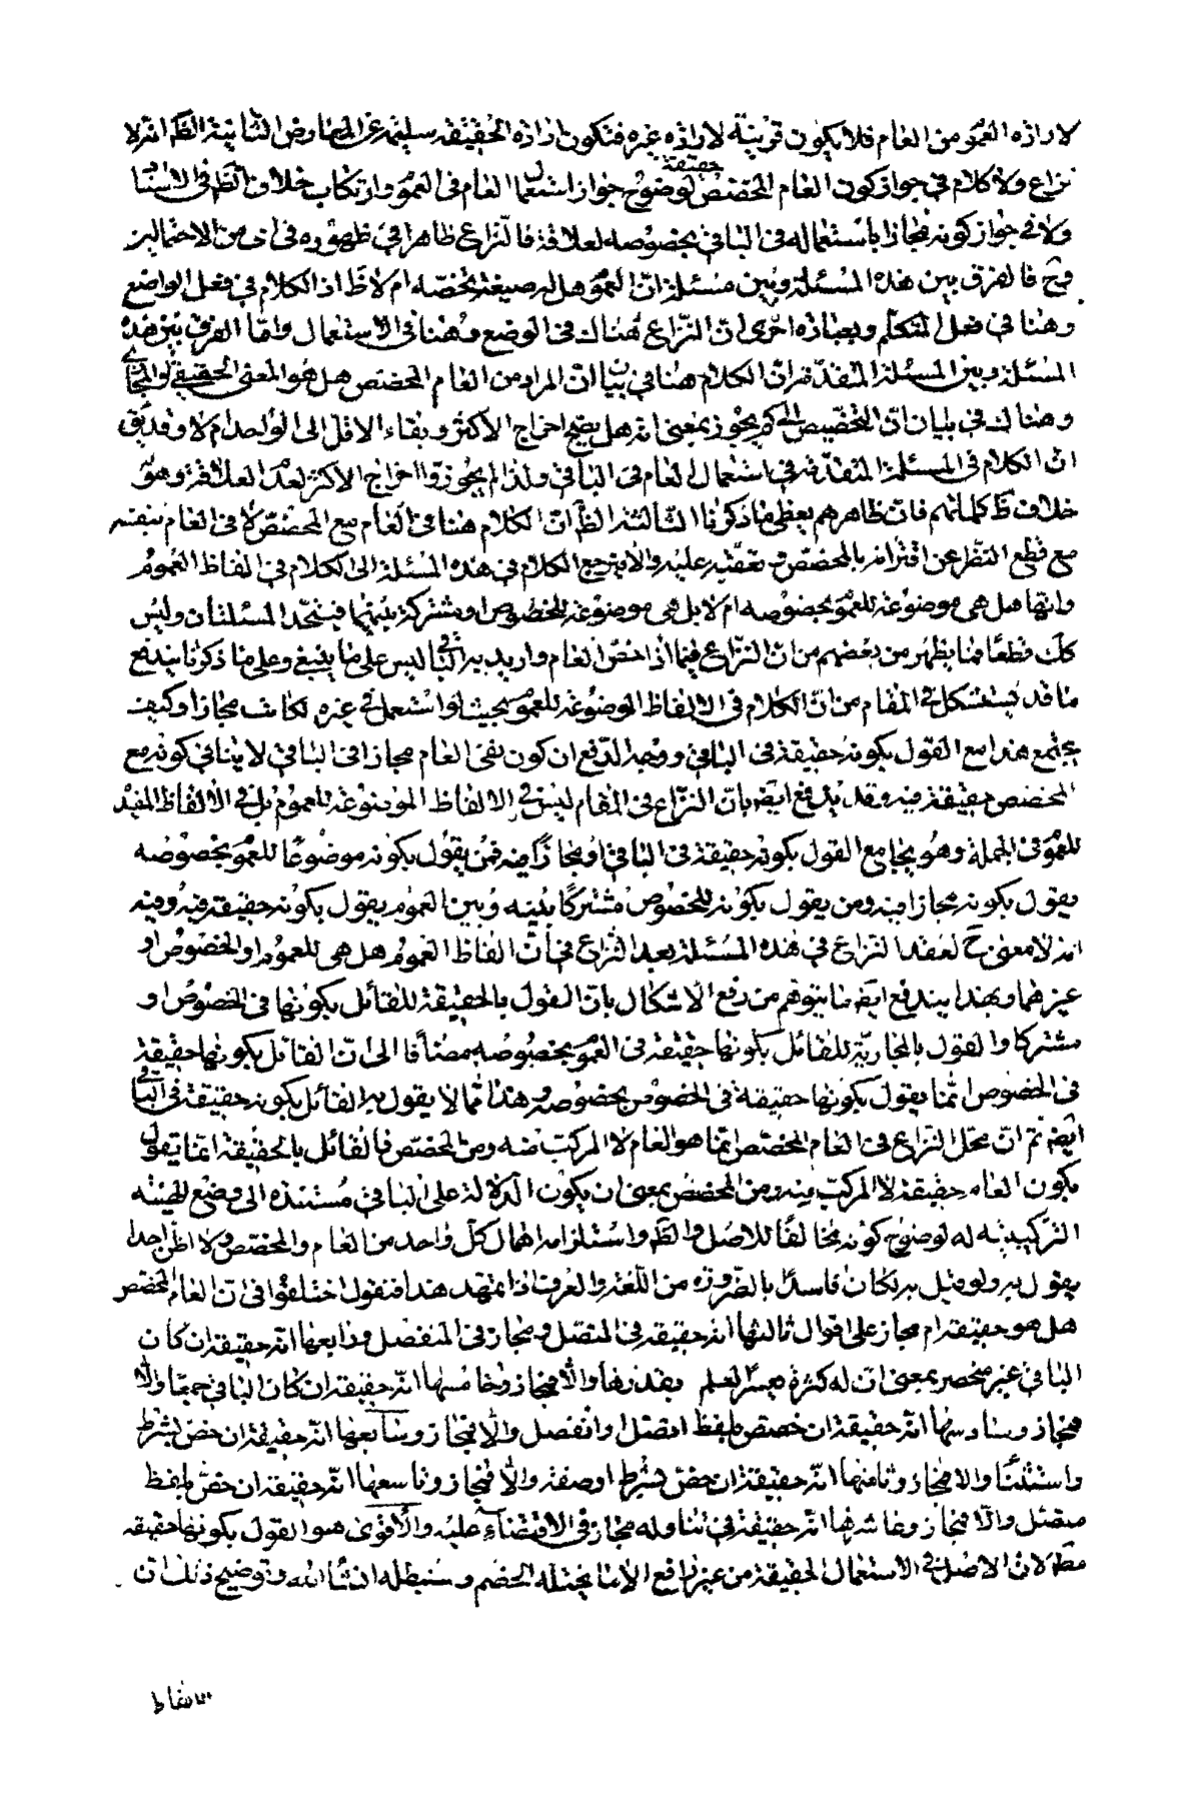 لارادة العمو من العام فلا يكون قرينة لارادة غيره فتكون ارادة الحقيقة سليمة عن المعارض الثانية الظ انه لا
نزاع ولا كلام في جواز كون العام المخصص حقيقة لوضوح جواز استعمال العام في العمو وارتكاب خلاف الظ في الاستثناء
ولا في جواز كونه مجازا باستعماله في الباقي بخصوصه لعلاقة فالنزاع ظاهرا في ظهوره في اى من الاحتمالين
وح فالفرق بين هذه المسئلة وبين مسئلة ان العمو هل له صيغة تخصه ام لا ظ اذ الكلام في فعل الواضع
وهنا في فعل المتكلم وبعبارة اخرى ان النزاع هناك في الوضع وهنا في الاستعمال واما الفرق بين هذه
المسئلة وبين المسئلة المتقدمة ان الكلام هنا في بيان ان المراد من العام المخصص هل هو المعنى الحقيقي او المجازي
وهناك في بيان ان التخصيص الى كم يجوز بمعنى انه هل يصح اخراج الاكثر وبقاء الاقل الى الواحد ام لا وقد يق
ان الكلام في المسئلة المتقدمة في استعمال العام في الباقي ولذا لم يجوزوا اخراج الاكثر لعدم العلاقة وهو
خلاف ظ كلماتهم فان ظاهرهم يعطى ما ذكرنا الثالثة الظ ان الكلام هنا في العام مع المخصص لا في العام بنفسه
مع قطع النظر عن اقترانه بالمخصص وتعقبه عليه والا يرجع الكلام في هذه المسئلة الى الكلام في الفاظ العموم
وانها هل هي موضوعة للعمو بخصوصه ام لا بل هي موضوعة للخصوص او مشتركة بينهما فيتحد المسئلتان وليس
كك قطعا فما يظهر من بعضهم من ان النزاع فيما اذا خص العام واريد به الباقي ليس على ما ينبغي وعلى ما ذكرنا يندفع
ما قد يستشكل في المقام من ان الكلام في الالفاظ الموضوعة للعمو بحيث لو استعمل في غيره لكانت مجازا وكيف
يجتمع هذا مع القول بكونه حقيقة في الباقي ووجه الدفع ان كون نفس العام مجازا في الباقي لا ينافي كونه مع
المخصص حقيقة فيه وقد يدفع ايضه بان النزاع في المقام ليس في الالفاظ الموضوعة للعموم بل في الالفاظ المفيد
للعمو في الجملة وهو يجامع القول بكونه حقيقة في الباقي او مجازا فيه فمن يقول بكونه موضوعا للعمو بخصوصه
يقول بكونه مجازا فيه ومن يقول بكونه للخصوص مشتركا بينه وبين العموم يقول بكونه حقيقة فيه وفيه
انه لا معنى ح لعقد النزاع في هذه المسئلة بعد النزاع في ان الفاظ العموم هل هي للعموم او الخصوص او
غيرهما وبهذا يندفع ايضه ما يتوهم من رفع الاشكال بان القول بالحقيقة للقائل بكونها في الخصوص او
مشتركا والقول بالمجازية للقائل بكونها حقيقة في العمو بخصوصه مضافا الى ان القائل بكونها حقيقة
في الخصوص انما يقول بكونها حقيقة في الخصوص بخصوصه وهذا مما لا يقول به القائل بكونه حقيقة في الباقي
ايضه ثم ان محل النزاع في العام المخصص انما هو العام لا المركب منه ومن المخصص فالقائل بالحقيقة انما يقول
بكون العام حقيقة لا المركب منه ومن المخصص بمعنى ان يكون الدلالة على الباقي مستندة الى وضع للهيئة
التركيبية له لوضوح كونه مخالفا للاصل والظ واستلزامه اهمال كل واحد من العام والمخصص ولا اظن احدا
يقول به ولو قيل به لكان فاسدا بالضرورة من اللغة والعرف اذا تمهد هذا فنقول اختلفوا في ان العام المخصص
هل هو حقيقة ام مجاز على اقوال ثالثها انه حقيقة في المتصل ومجاز في المنفصل ورابعها انه حقيقة ان كان
الباقي غير منحصر بمعنى ان له كثرة يعسر العلم بقدرها والا فمجاز وخامسها انه حقيقة ان كان الباقي جمعا والا
مجاز وسادسها انه حقيقة ان خصص بلفظ اتصل او انفصل والا فمجاز وسابعها انه حقيقة ان خص بشرط
واستثناء والا مجاز وثامنها انه حقيقة ان خص بشرط او صفة والا فمجاز وتاسعها انه حقيقة ان خص بلفظ
متصل والا فمجاز وعاشرها انه حقيقة في تناوله مجاز في الاقتصار عليه والاقوى هو القول بكونها حقيقة
مط لان الاصل في الاستعمال الحقيقة من غير رافع الا ما يخيله الخصم وسنبطله انشا الله وتوضيح ذلك ان